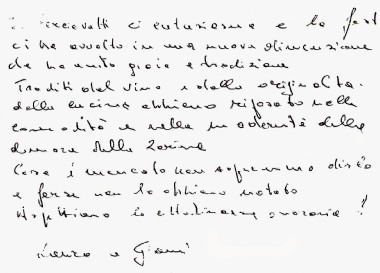 ci entusiasma e la fest
ci ha avvolto in una nuova dimensione
che ha unito gioia e tradizione
Traditi dal vino e dalla originalità
della cucina abbiamo riposato nella
comodità e nella modernità della
dimora della Zorima
Cosa è mancato non sapremmo dirlo
e forse non lo abbiamo notato
Aspettiamo la ottatinassa !
Renzo e Gianni